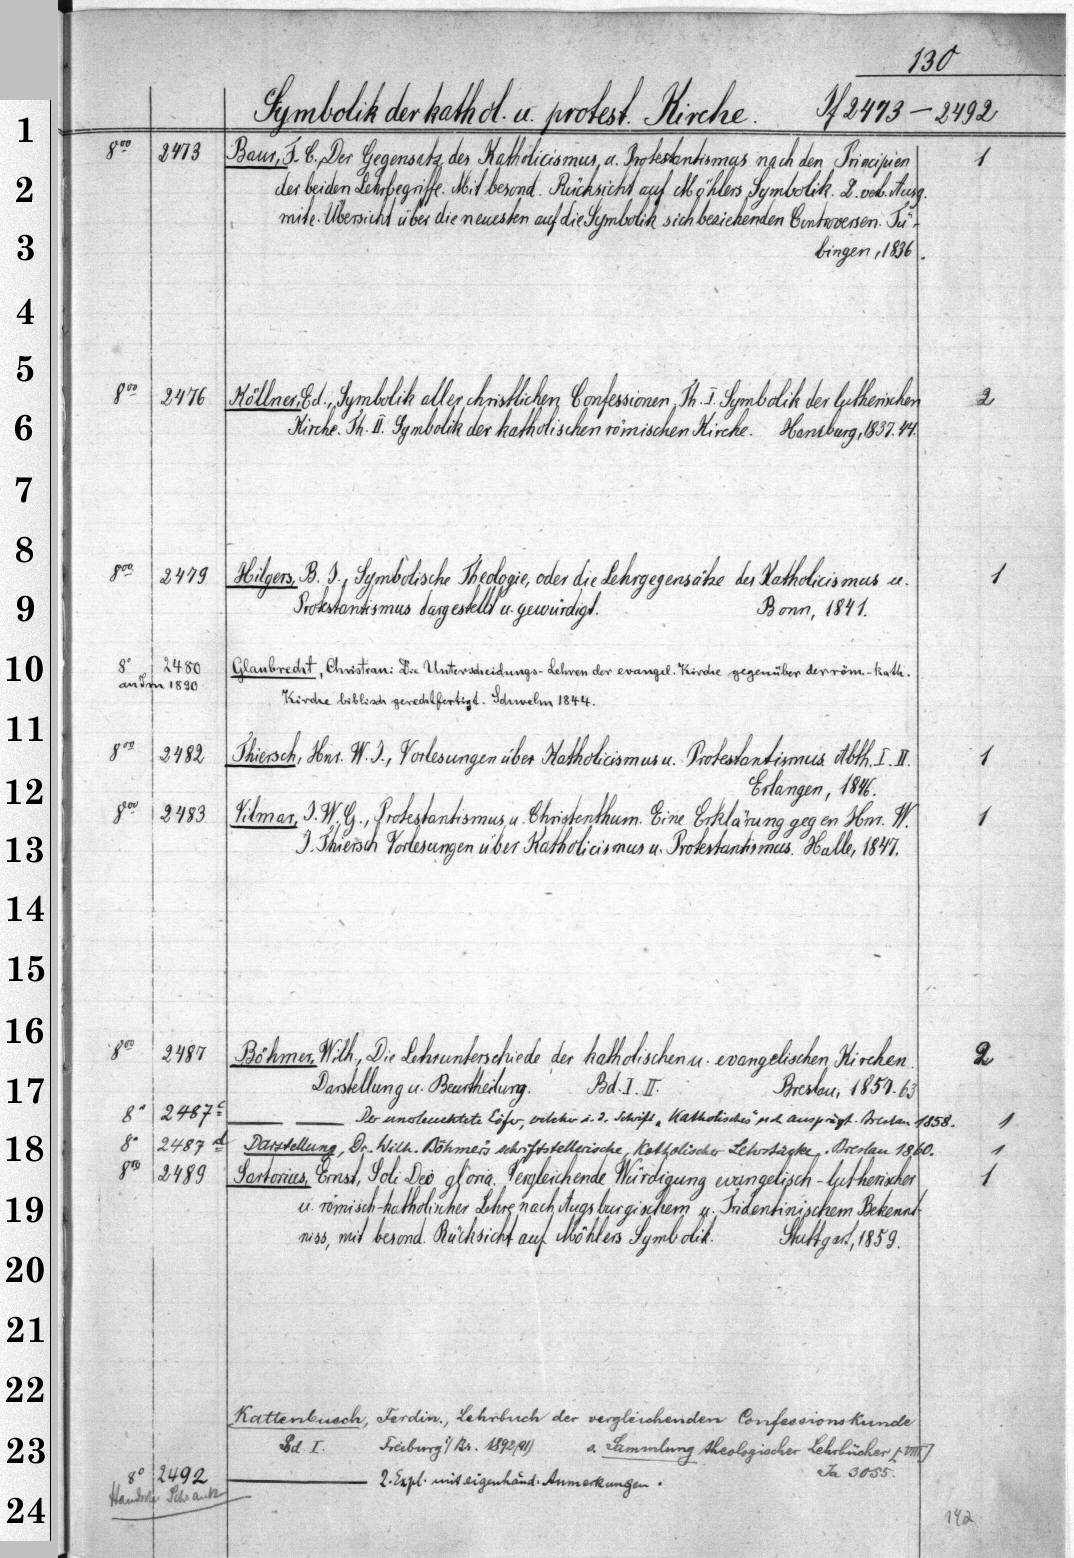 130
Symbolik der kathol. u. protest. Kirche. If 2473 – 2492
8°° 2473 Baur, F. C., Der Gegensatz des Katholicismus u. Protestantismus nach den Principien 1
der beiden Lehrbegriffe. Mit besond. Rücksicht auf Möhlers Symbolik. 2. verb. Ausg.
mit e. Übersicht über die neuesten auf die Symbolik sich beziehenden Controversen. Tü-
bingen, 1836.
8°° 2476 Köllner, Ed., Symbolik aller christlichen Confessionen, Th. I. Symbolik der lutherischen 2
Kirche. Th. II. Symbolik der katholischen römischen Kirche. Hamburg, 1837. 44.
8°° 2479 Hilgers, B. J., Symbolische Theologie, oder die Lehrgegensätze des Katholicismus u. 1
Protestantismus dargestellt u. gewürdigt. Bonn, 1841.
8° 2480 Glaubrecht, Christian: Die Unterscheidungs-Lehren der evangel. Kirche gegenüber der röm.-kath.
an Im 1890
Kirche biblisch gerechtfertigt. Schwelm 1844.
8°° 2482 Thiersch, Hnr. W. J., Vorlesungen über Katholicismus u. Protestantismus. Abth. I. II. 1
Erlangen, 1846.
8°° 2483 Vilmar, J. W. G., Protestantismus u. Christenthum. Eine Erklärung gegen Hnr. W. 1
J. Thiersch Vorlesungen über Katholicismus u. Protestantismus. Halle, 1847.
8°° 2487 Böhmer, Wilh., Die Lehrunterschiede der katholischen u. evangelischen Kirchen. 2
Darstellung u. Beurtheilung. Bd. I. II. Breslau, 1857. 63
8° 2487 c — — Der unerleuchtete Eifer, welcher i. d. Schrift „Katholisches" sich ausprägt. Breslau 1858. 1
8° 2487 d Darstellung, Dr. Wilh. Böhmer's schriftstellerische, Katholischer Lehrsätze. Breslau 1860. 1
8°° 2489 Sartorius, Ernst, Soli Deo gloria. Vergleichende Würdigung evangelisch-lutherischer 1
u. römisch-katholischer Lehre nach Augsburgischem u. Tridentinischem Bekennt-
niss, mit besond. Rücksicht auf Möhlers Symbolik. Stuttgart, 1859.
Kattenbusch, Ferdin., Lehrbuch der vergleichenden Confessionskunde
Bd. I. Freiburg i/Br. 1892 s. Sammlung theologischer Lehrbücher [VIII]
Ia 3055.
8° 2492 — 2. Expl. mit eigenhänd. Anmerkungen.
Handschr. Schrank
142
1
2
3
4
5
6
7
8
9
10
11
12
13
14
15
16
17
18
19
20
21
22
23
24